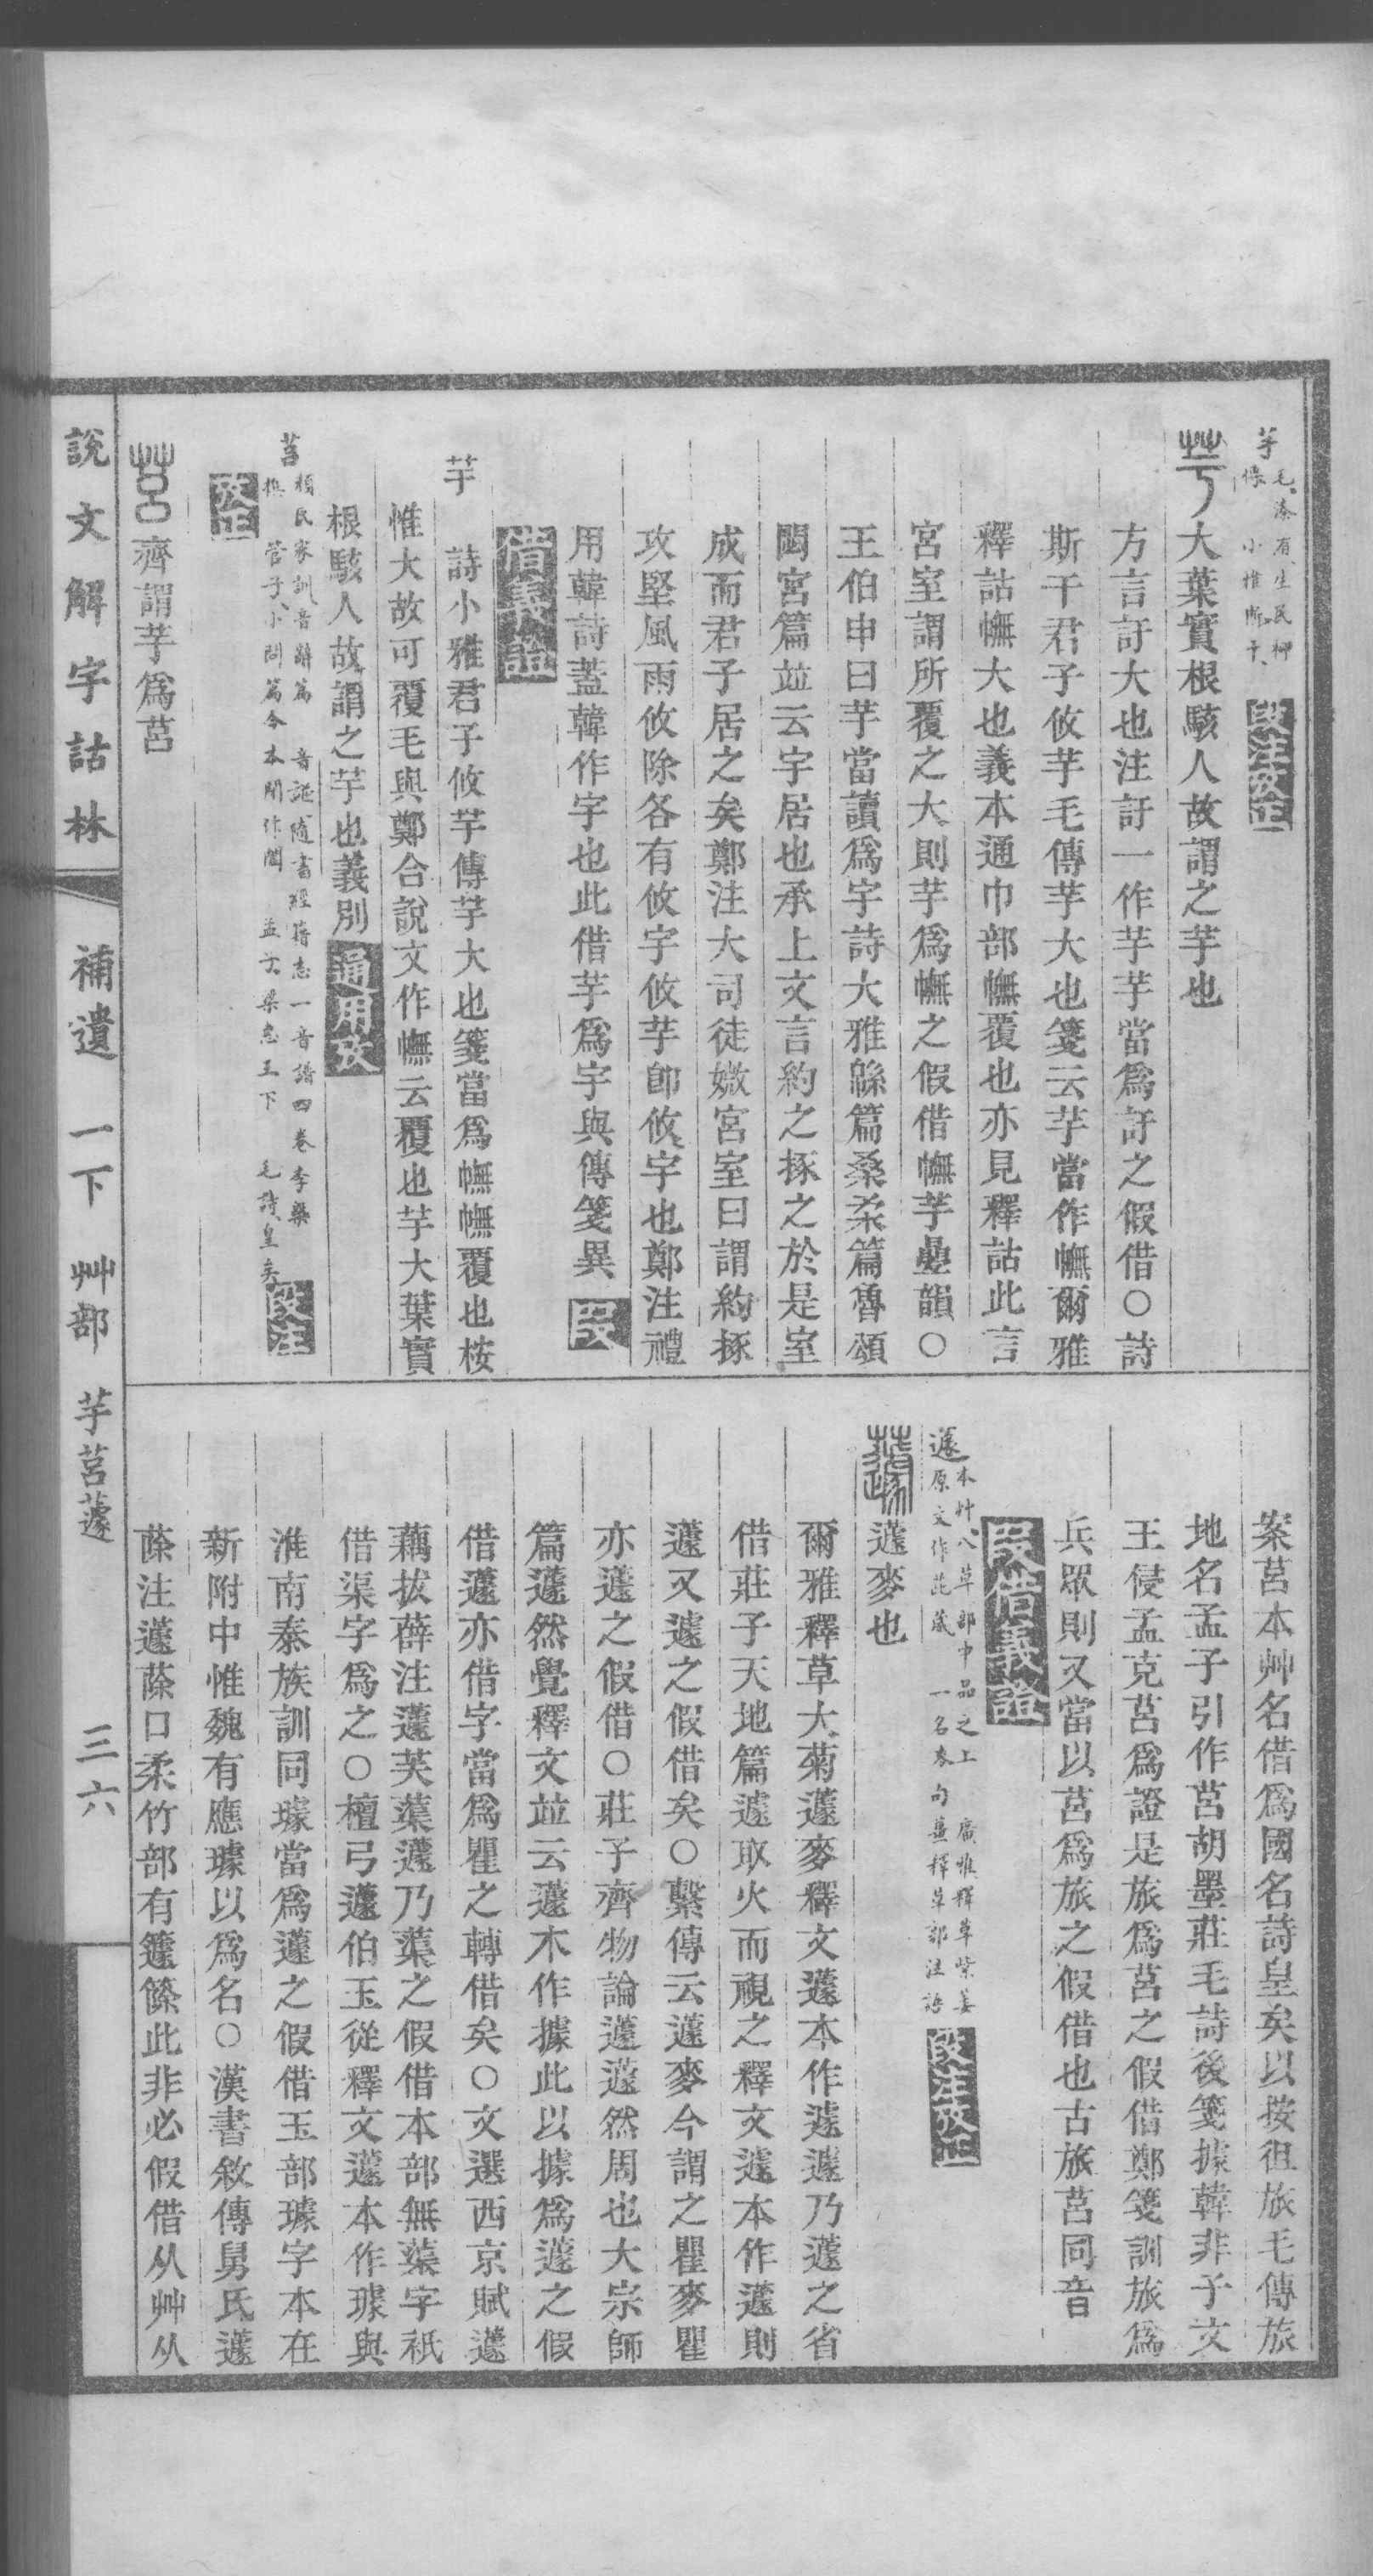 芋
段注攷正
大葉實根駭人故謂之芋也
方言訏大也注訏一作芋芋當爲訏之假借○詩
斯干君子攸芋毛傳芋大也箋云芋當作幠爾雅
釋詁幠大也義本通巾部幠覆也亦見釋詁此言
宮室謂所覆之大則芋爲幠之假借幠芋曡韻○
王伯申曰芋當讀爲宇詩大雅緜篇桑柔篇魯頌
閟宮篇竝云宇居也承上文言約之椓之於是室
成而君子居之矣鄭注大司徒媺宮室曰謂約椓
攻堅風雨攸除各有攸宇攸芋卽攸宇也鄭注禮
用韓詩蓋韓作宇也此借芋爲宇與傳箋異
借義證
芋 詩小雅君子攸芋傳芋大也箋當爲幠幠覆也桉
惟大故可覆毛與鄭合說文作幠云覆也芋大葉實
根駭人故謂之芋也義別 通用攷
莒 顏氏家訓音辭篇 音證隨書經籍志一音譜四卷李槩
撰 管子小問篇今本開作闔 孟子梁惠王下 毛詩皇矣
段注
攷正
齊謂芋爲莒
案莒本艸名借爲國名詩皇矣以按徂旅毛傳旅
地名孟子引作莒胡墨莊毛詩後箋據韓非子文
王侵孟克莒爲證是旅爲莒之假借鄭箋訓旅爲
兵眾則又當以莒爲旅之假借也古旅莒同音
借義證
蘧 本艸八草部中品之上 廣雅釋草茈葳
原文作茈葳 一名麥句薑釋草郭注語
段注攷正
蘧麥也
爾雅釋草大菊蘧麥釋文蘧本作遽遽乃蘧之省
借莊子天地篇遽取火而視之釋文遽本作蘧則
蘧又遽之假借矣○繫傳云蘧麥今謂之瞿麥瞿
亦蘧之假借○莊子齊物論蘧蘧然周也大宗師
篇蘧然覺釋文竝云蘧木作據此以據爲蘧之假
借蘧亦借字當爲瞿之轉借矣○文選西京賦蘧
藕拔薛注蘧芙蕖蘧乃蕖之假借本部無蕖字祇
借渠字爲之○檀弓蘧伯玉從釋文蘧本作璩與
淮南泰族訓同璩當爲蘧之假借玉部璩字本在
新附中惟魏有應璩以爲名○漢書敘傳舅氏蘧
蒢注蘧蒢口柔竹部有籧篨此非必假借从艸从
說文解字詁林
補遺 一下 艸部 芋莒蘧
三六